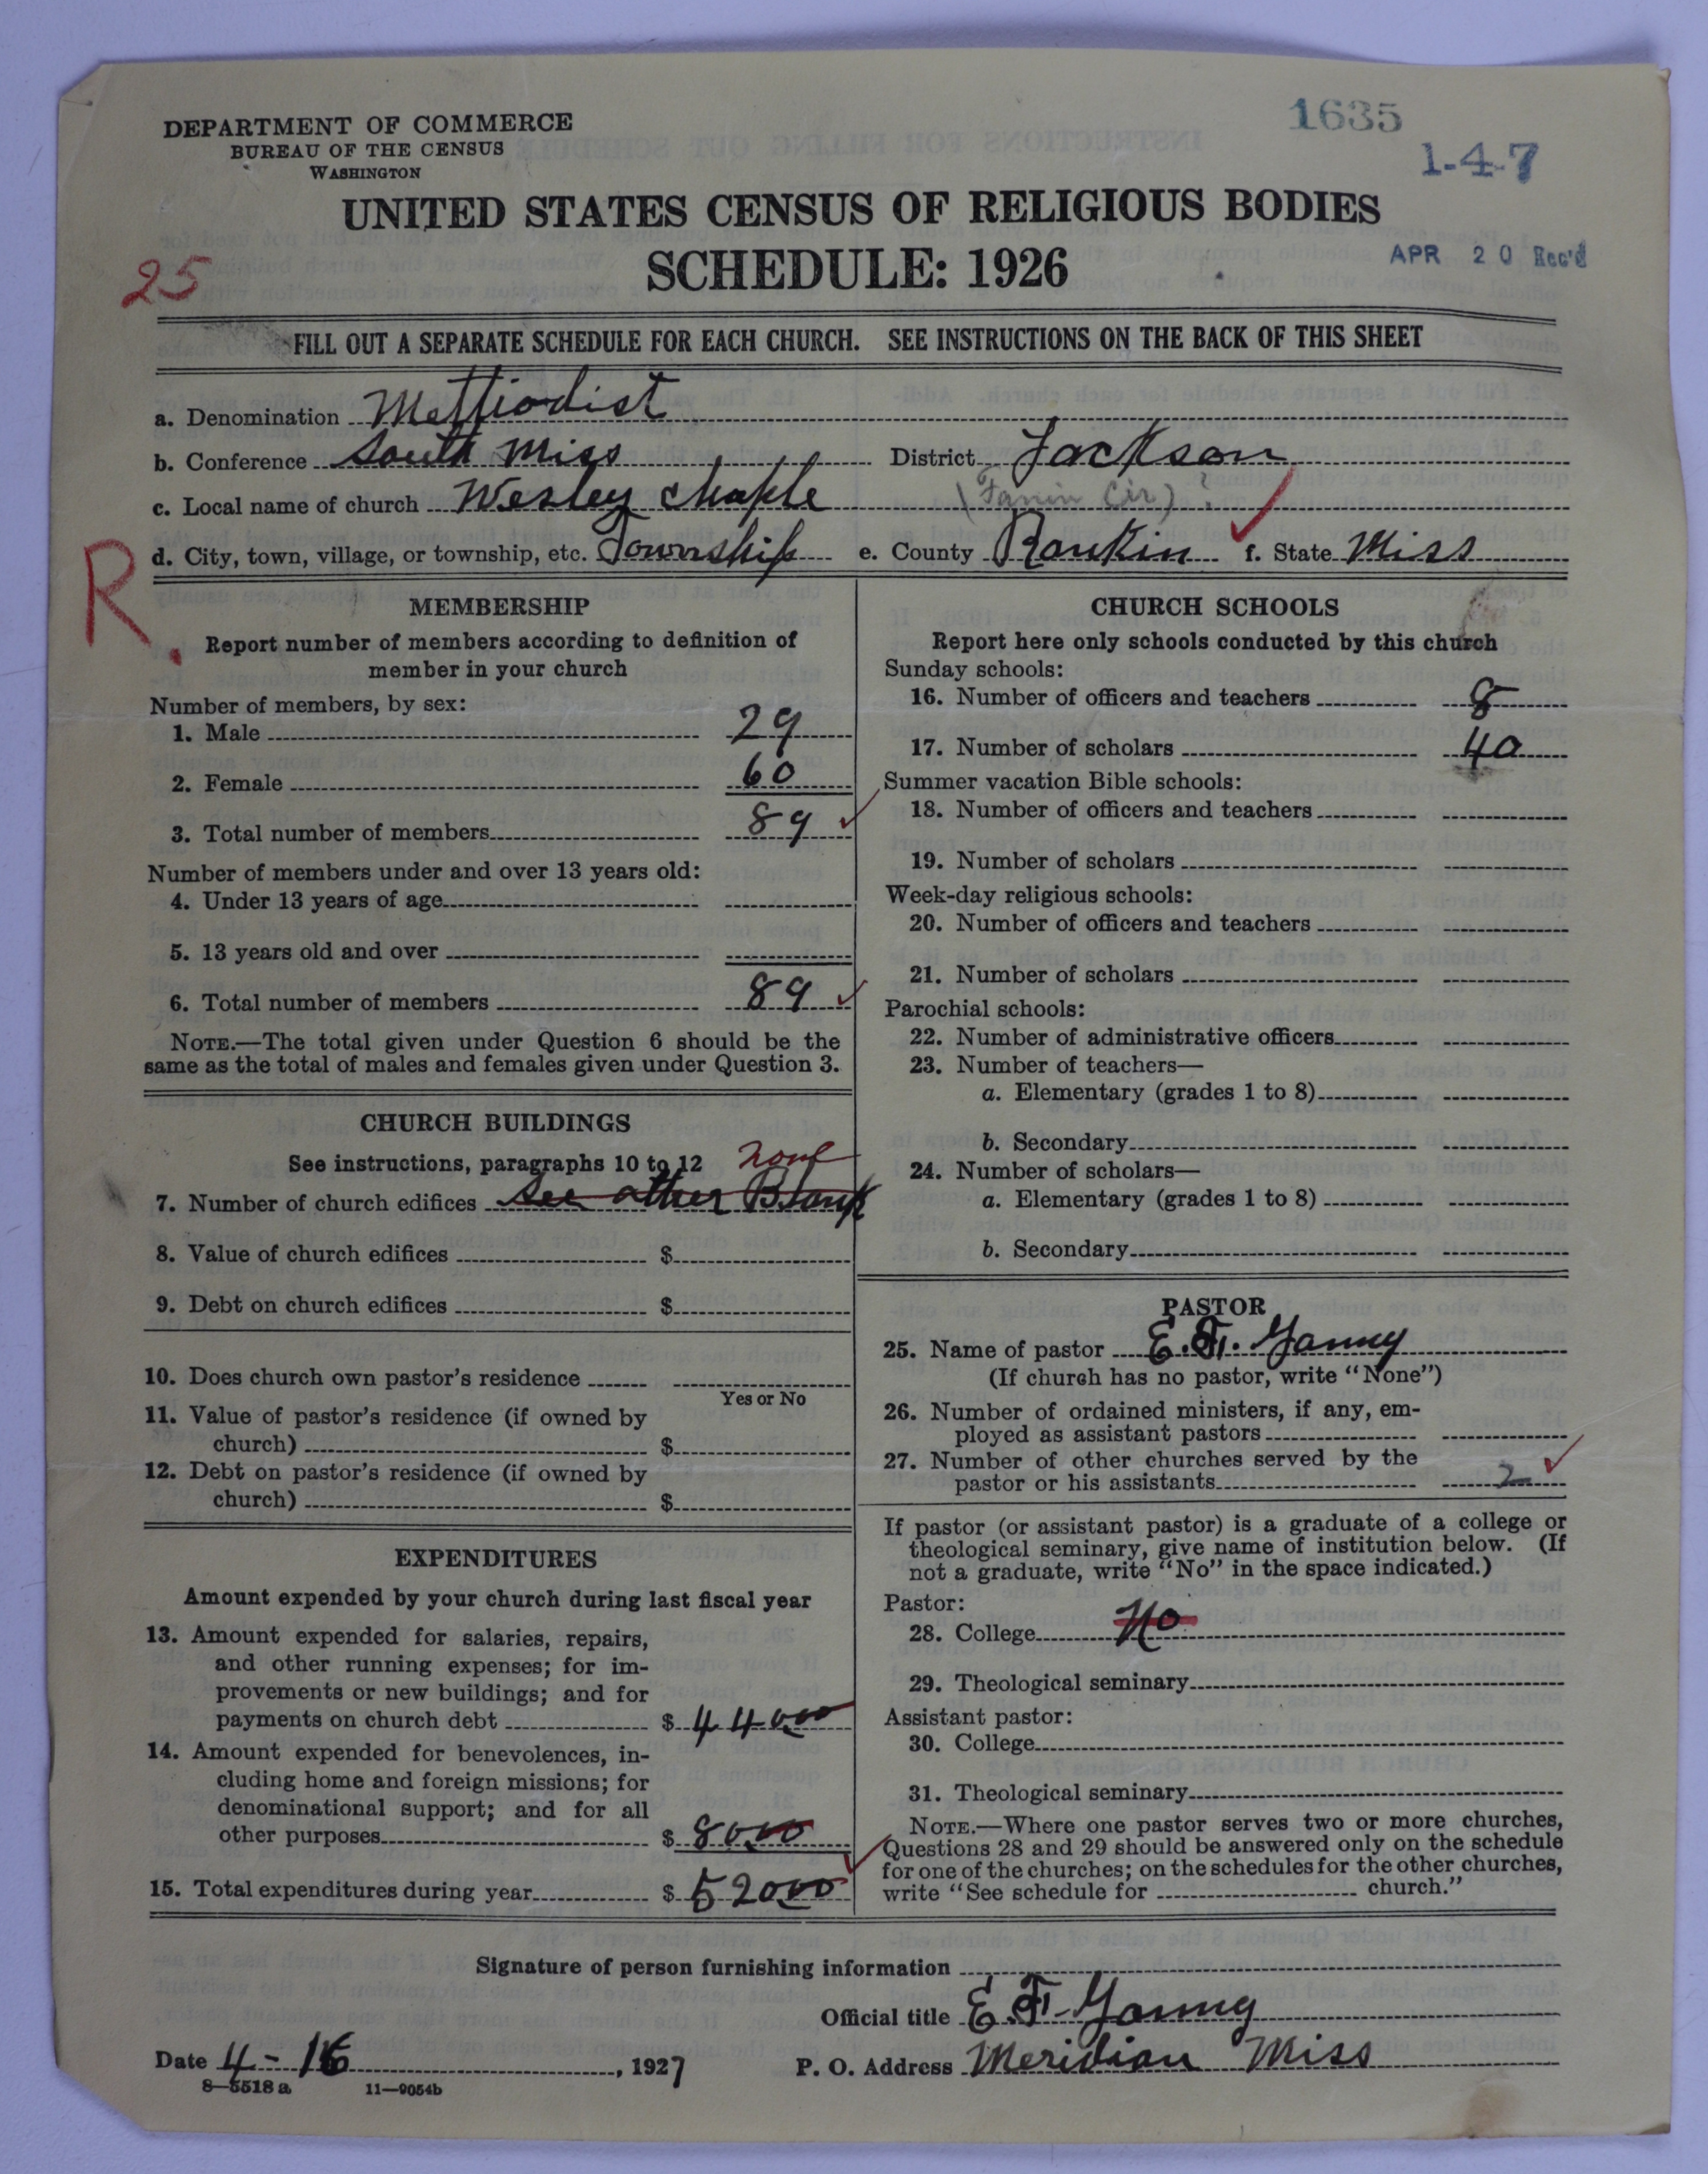 DEPARTMENT OF COMMERCE
BUREAU OF THE CENSUS
WASHINGTON
1635
1-4-7
UNITED STATES CENSUS OF RELIGIOUS BODIES
SCHEDULE: 1926
APR 20 Rec'd
25
FILL OUT A SEPARATE SCHEDULE FOR EACH CHURCH. SEE INSTRUCTIONS ON THE BACK OF THIS SHEET
a. Denomination Methodist
b. Conference South Miss District Jackson
c. Local name of church Wesley Chaple (Fanin Cir) ?
d. City, town, village, or township, etc. Township e. County Rankin f. State Miss
R.
MEMBERSHIP
Report number of members according to definition of
member in your church
Number of members, by sex:
1. Male 29
2. Female 60
3. Total number of members 89
Number of members under and over 13 years old:
4. Under 13 years of age
5. 13 years old and over
6. Total number of members 89
NOTE.—The total given under Question 6 should be the
same as the total of males and females given under Question 3.
CHURCH BUILDINGS
See instructions, paragraphs 10 to 12 none
7. Number of church edifices See other Blank
8. Value of church edifices $
9. Debt on church edifices $
10. Does church own pastor's residence
Yes or No
11. Value of pastor's residence (if owned by
church) $
12. Debt on pastor's residence (if owned by
church) $
EXPENDITURES
Amount expended by your church during last fiscal year
13. Amount expended for salaries, repairs,
and other running expenses; for im-
provements or new buildings; and for
payments on church debt $ 44000
14. Amount expended for benevolences, in-
cluding home and foreign missions; for
denominational support; and for all
other purposes $ 8000
15. Total expenditures during year $ 52000
CHURCH SCHOOLS
Report here only schools conducted by this church
Sunday schools:
16. Number of officers and teachers 8
17. Number of scholars 40
Summer vacation Bible schools:
18. Number of officers and teachers
19. Number of scholars
Week-day religious schools:
20. Number of officers and teachers
21. Number of scholars
Parochial schools:
22. Number of administrative officers
23. Number of teachers—
a. Elementary (grades 1 to 8)
b. Secondary
24. Number of scholars—
a. Elementary (grades 1 to 8)
b. Secondary
PASTOR
25. Name of pastor E. F.
(If church has no pastor, write "None")
26. Number of ordained ministers, if any, em-
ployed as assistant pastors
27. Number of other churches served by the
pastor or his assistants 2
If pastor (or assistant pastor) is a graduate of a college or
theological seminary, give name of institution below. (If
not a graduate, write "No" in the space indicated.)
Pastor:
28. College No
29. Theological seminary
Assistant pastor:
30. College
31. Theological seminary
NOTE.—Where one pastor serves two or more churches,
Questions 28 and 29 should be answered only on the schedule
for one of the churches; on the schedules for the other churches,
write "See schedule for church."
Signature of person furnishing information
Official title E. F.
Date 4-16, 1927 P. O. Address Meridian Miss
8—5518a 11—9054b